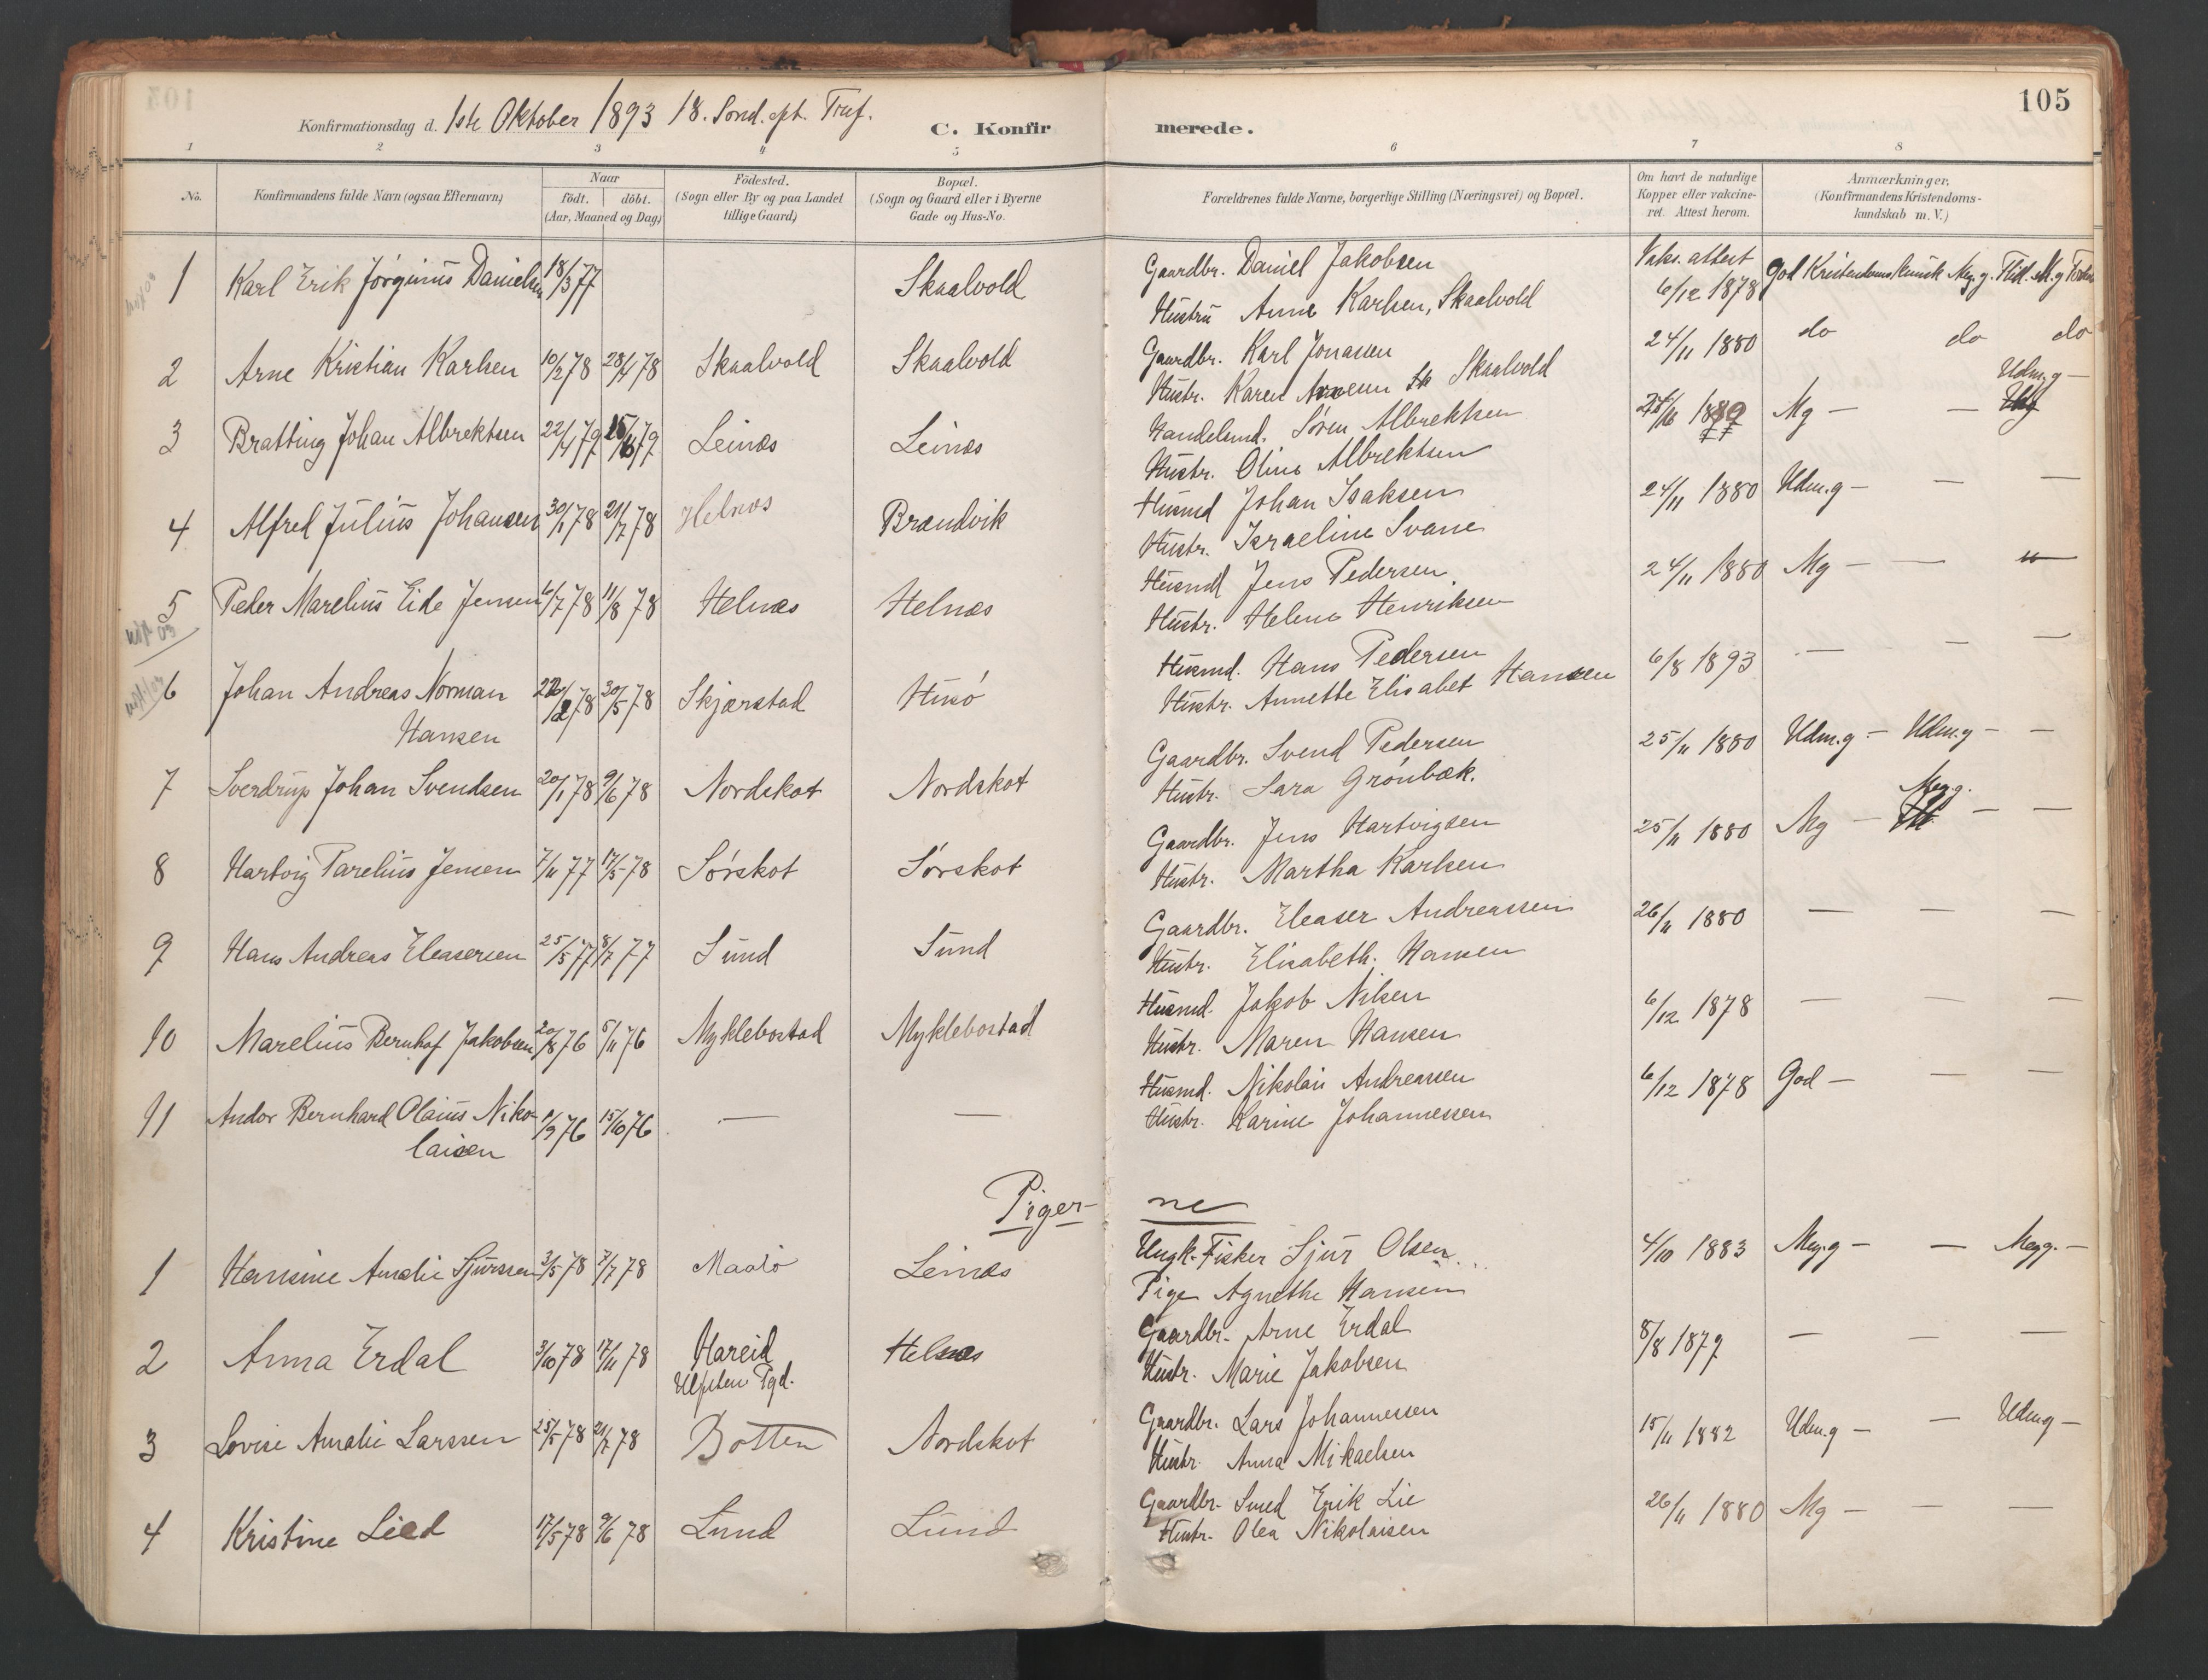 105
Konfirmationsdag d. 1ste Oktober 1893 18. Sønd. eft. Tref.
C. Konfirmerede.
1 2 3 4 5 6 7 8
No. Konfirmandens fulde Navn (ogsaa Efternavn) Naar födt. döbt. (Aar, Maaned og Dag) Födested. (Sogn eller By og paa Landet tillige Gaard) Bopæl. (Sogn og Gaard eller i Byerne Gade og Hus-No. Forældrenes fulde Navne, borgerlige Stilling (Næringsvei) og Bopæl. Om havt de naturlige Kopper eller vakcineret. Attest herom. Anmærkninger, (Konfirmandens Kristendomskundskab m. V.)
1 Karl Erik Jørginus Danielsen 18/3 77 Skaalvold Gaardbr. Daniel Jakobsen Vaks. attest
Hustru Anne Karlsen, Skaalvold 6/12 1878 God Kristendomskundsk Meg. g. Flid. M.g
2 Arne Kristian Karlsen 10/2 78 28/4 78 Skaalvold Skaalvold Gaardbr. Karl Jonassen 24/11 1880 do do do
Hustr. Karen Skaalvold
3 Bratting Johan Albrektsen 22/4 79 79 Leines Leines Handelsmd. Søren Albrektsen Mg — — Udm.g —
Hustr. Oline Albrektsen
4 Alfred Julius Johansen 30/1 78 21/7 78 Helnes Brændvik Husmd Johan Isaksen 24/11 1880 Udm.g — — —
Hustr. Israeline Svane
5 Peder Marelius Eide Jensen 6/7 78 11/8 78 Helnæs Helnæs Husmd Jens Pedersen 24/11 1880 Mg — —
Hustr. Helene Henriksen
6 Johan Andreas Norman 78 30/5 78 Skjærstad Husø Husmd. Hans Pedersen 6/8 1893 — — —
Hansen Hustr. Annette Elisabet Hansen
7 Sverdrup Johan Svendsen 20/1 78 9/6 78 Nordskot Nordskot Gaardbr. Svend Pedersen 25/11 1880 Udm.g — Udm.g — —
Hustr. Sara Grønbæk.
8 Hartvig Parelius Jensen 7/11 77 17/5 78 Sørskot Sørskot Gaardbr. Jens Hartvigsen 25/11 1880 Mg — Meg.g. — —
Hustr. Martha Karlsen
9 Hans Andreas Eleasersen 25/5 77 8/7 77 Sund Sund Gaardbr. Eleaser Andreassen 26/11 1880 — — —
Hustr. Elisabeth. Hansen
10 Marelius Bernhof Jakobsen 20/8 76 5/11 76 Myklebostad Myklebostad Husmd. Jakob Nilsen 6/12 1878 — — —
Hustr. Maren Hansen
11 Andor Bernhard Olaius Nikolaisen /9 76 15/10 76 — — Husmd. Nikolai Andreassen 6/12 1878 God — — —
Hustr. Karine Johannessen
Pigerne
1 Hansine Amalie Sjurssen 3/5 78 7/7 78 Maalø Leines Ungk. Fisker Sjur Olsen 4/10 1883 Meg.g — — Megg. —
Pige Agnethe Hansen
2 Anna Erdal 3/10 78 17/11 78 Hareid Helnes Gaardbr. Arne Erdal 8/8 1879 — — —
Ulfsten Pgd. Hustr. Marie Jakobsen
3 Lovise Amalie Larssen 25/5 78 21/7 78 Botten Nordskot Gaardbr. Lars Johannessen 15/11 1882 Udm.g — — Udm.g —
Hustr. Anna Mikaelsen
4 Kristine Lied 17/5 78 9/6 78 Lund Lund Gaardbr. Smed Erik Lie 26/11 1880 Mg — — —
Hustr. Olea Nikolaisen